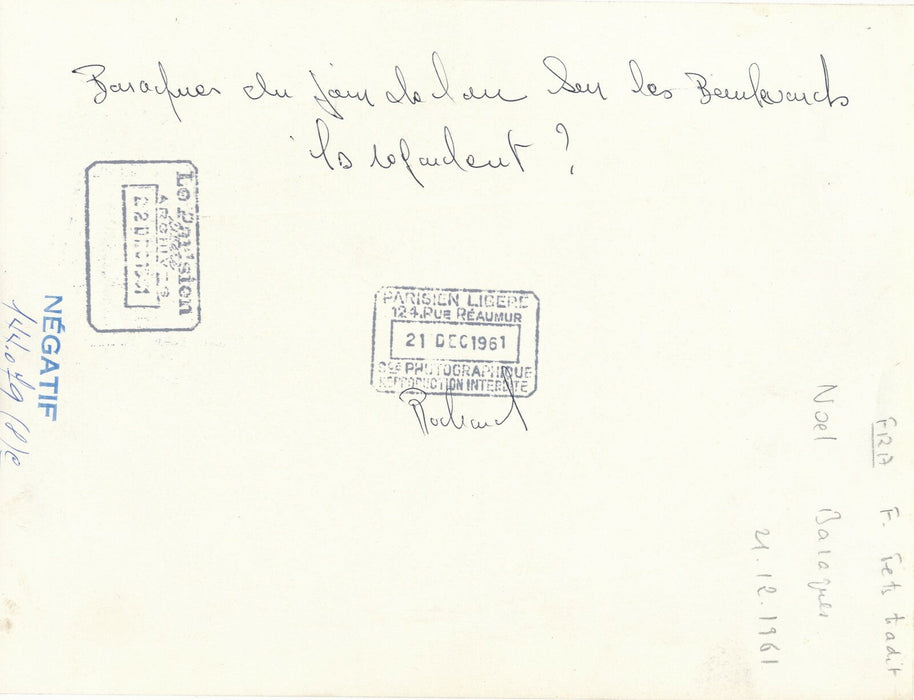 Baraques du jour de l'an Sur les Boulevards
ils regardent ?
Le Parisien
libéré
ARCHIVES
22 DEC 1961
PARISIEN LIBÉRÉ
124, RUE RÉAUMUR
21 DEC 1961
SCE PHOTOGRAPHIQUE
REPRODUCTION INTERDITE
NÉGATIF
144.079
F. Fets tradit
Noel Baraques
21.12.1961